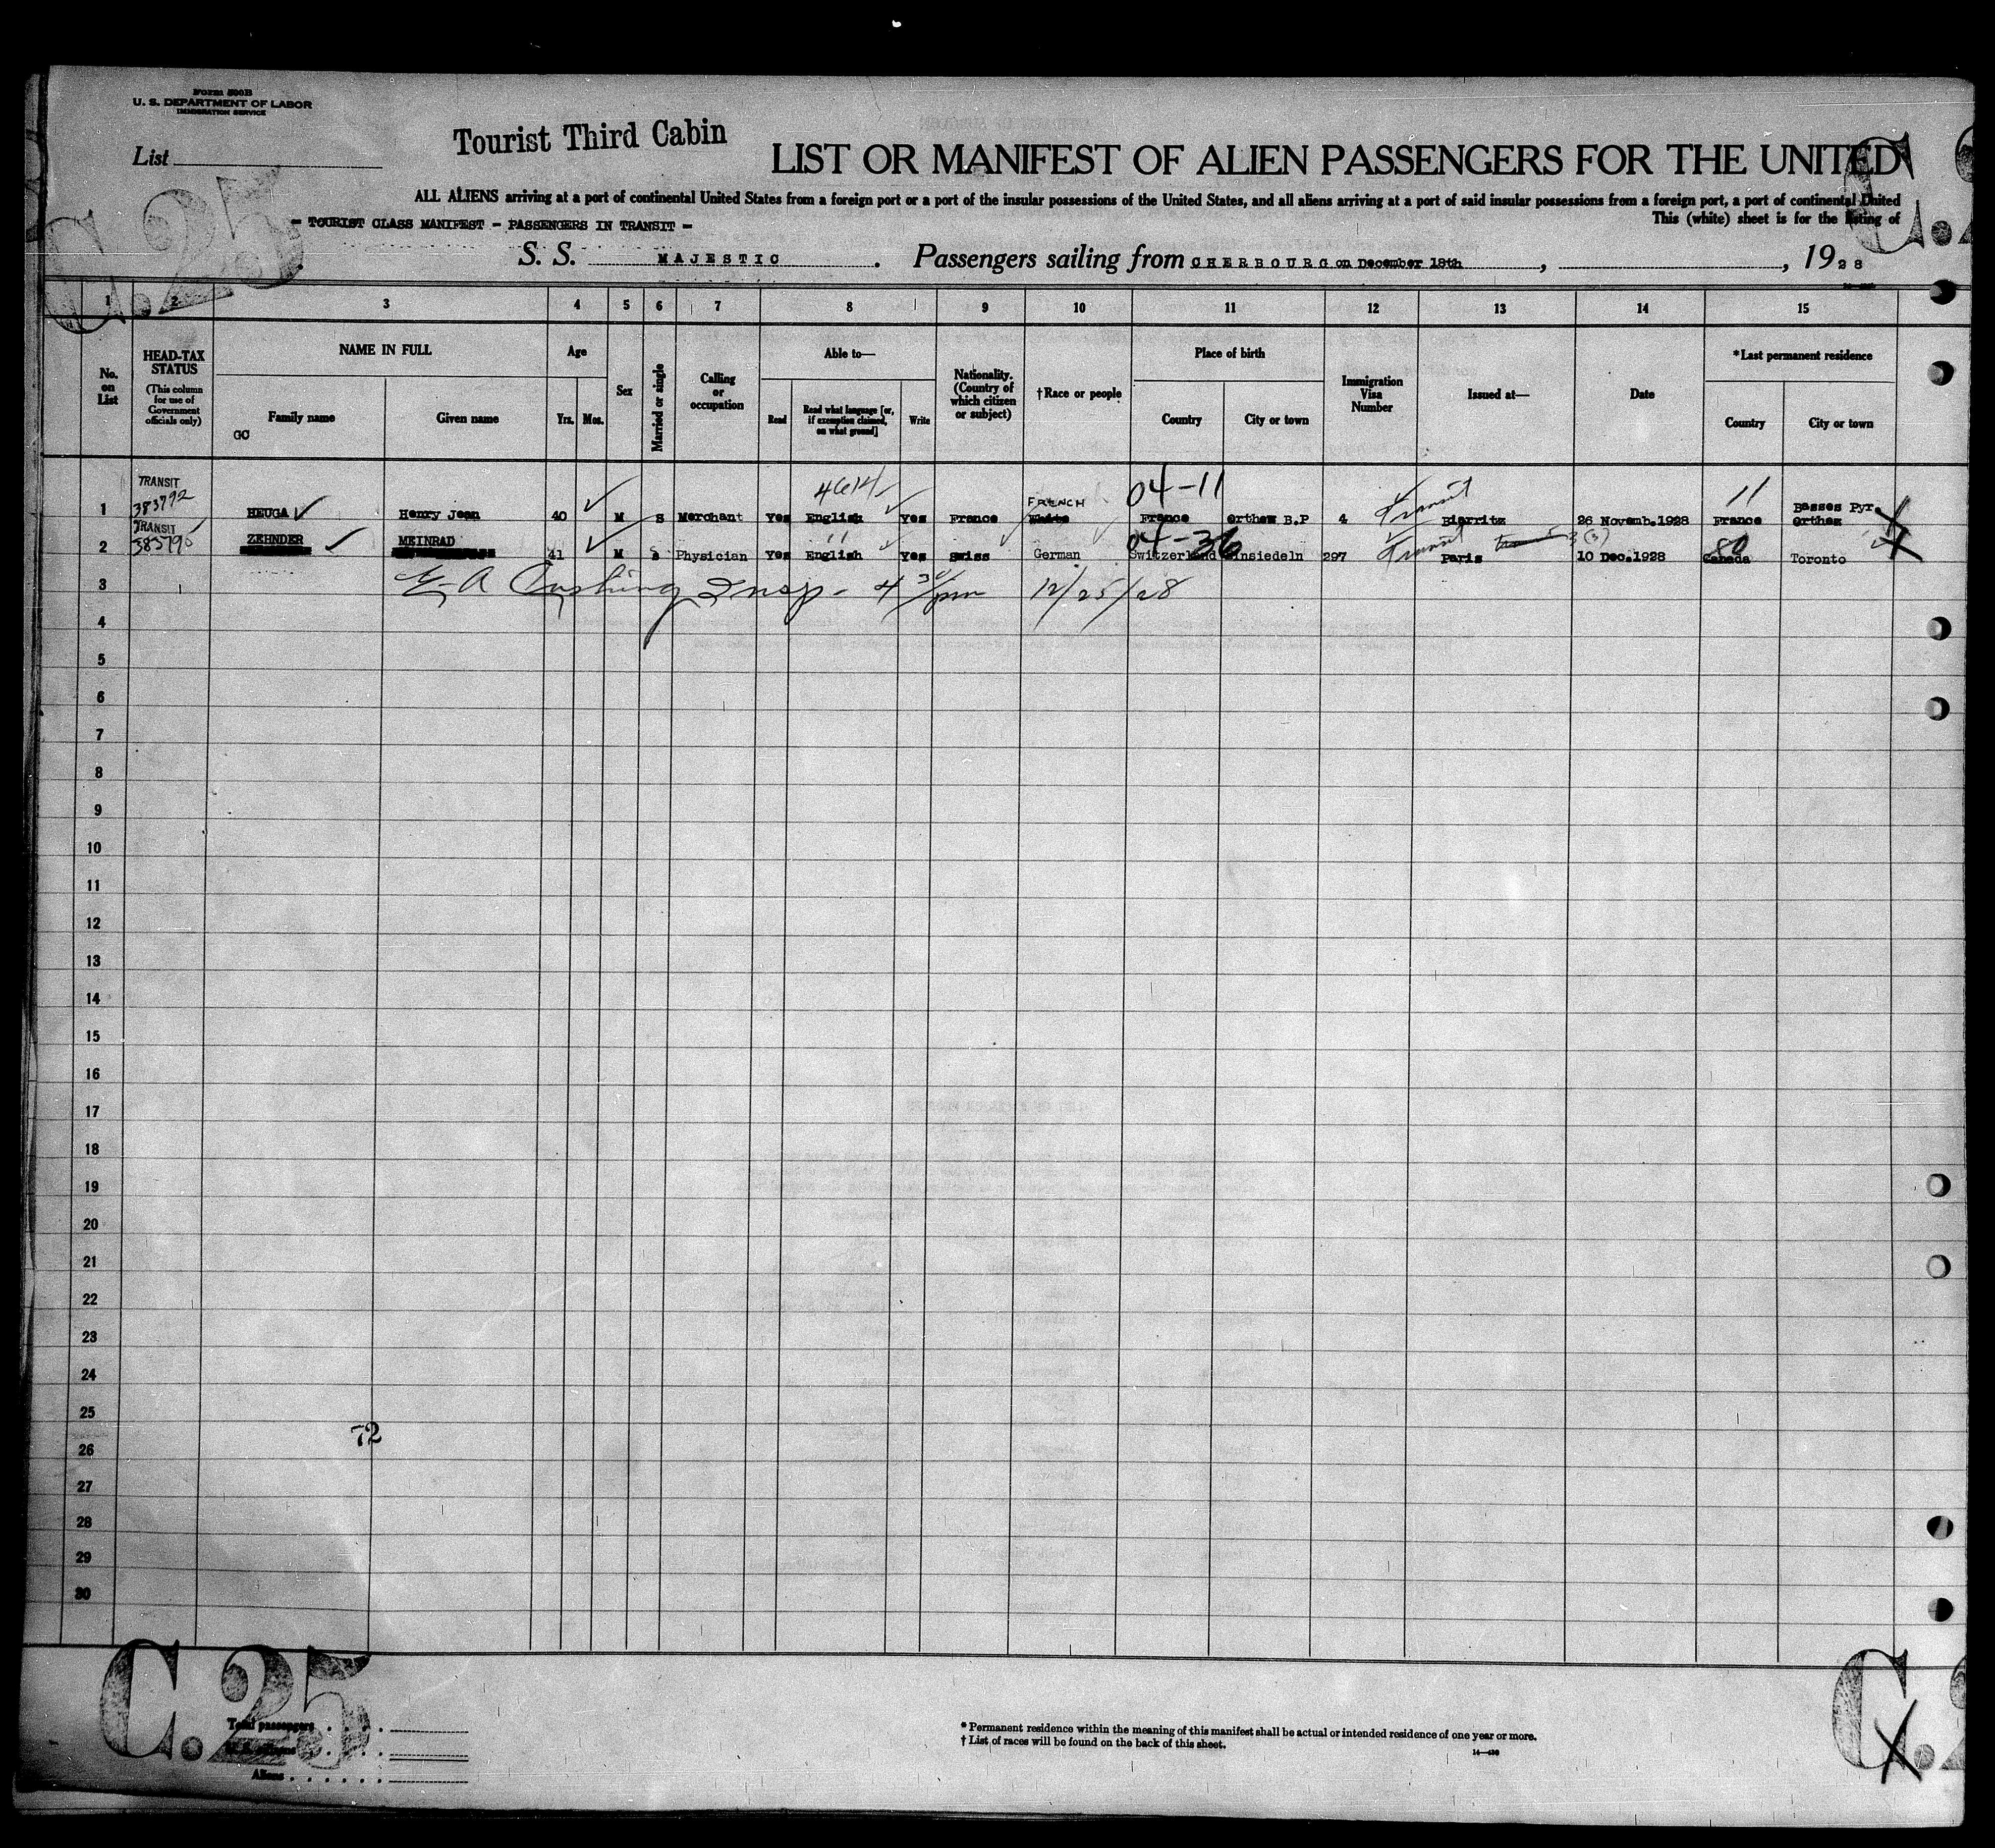 Form 500B
U. S. DEPARTMENT OF LABOR
IMMIGRATION SERVICE
List
Tourist Third Cabin
LIST OR MANIFEST OF ALIEN PASSENGERS FOR THE UNITED
ALL ALIENS arriving at a port of continental United States from a foreign port or a port of the insular possessions of the United States, and all aliens arriving at a port of said insular possessions from a foreign port, a port of continental United
This (white) sheet is for the listing of
- TOURIST CLASS MANIFEST - PASSENGERS IN TRANSIT -
C.25
S. S. MAJESTIC. Passengers sailing from CHERBOURG on December 18th, , 1928
1 2 3 4 5 6 7 8 9 10 11 12 13 14 15
No. on List
HEAD-TAX STATUS
(This column for use of Government officials only)
NAME IN FULL
Family name
Given name
Age
Yrs.
Mos.
Sex
Married or single
Calling or occupation
Able to—
Read
Read what language [or, if exemption claimed, on what ground]
Write
Nationality. (Country of which citizen or subject)
†Race or people
Place of birth
Country
City or town
Immigration Visa Number
Issued at—
Date
*Last permanent residence
Country
City or town
TRANSIT
383792
1 HEUGA Henry Jean 40 M S Merchant Yes English Yes France FRENCH White 04-11 France Orthez B.P 4 Transit Biarritz 26 Novemb.1928 11 France Basses Pyr. Orthez
TRANSIT
2 ZEHNDER MEINRAD 41 M S Physician Yes English Yes Swiss German 04-36 Switzerland Einsiedeln 297 Transit Paris 10 Dec.1928 80 Canada Toronto
3 E A Cushing Insp - 4 30 pm 12/25/28
4
5
6
7
8
9
10
11
12
13
14
15
16
17
18
19
20
21
22
23
24
25
72
26
27
28
29
30
C.25
Total passengers
Aliens
* Permanent residence within the meaning of this manifest shall be actual or intended residence of one year or more.
† List of races will be found on the back of this sheet.